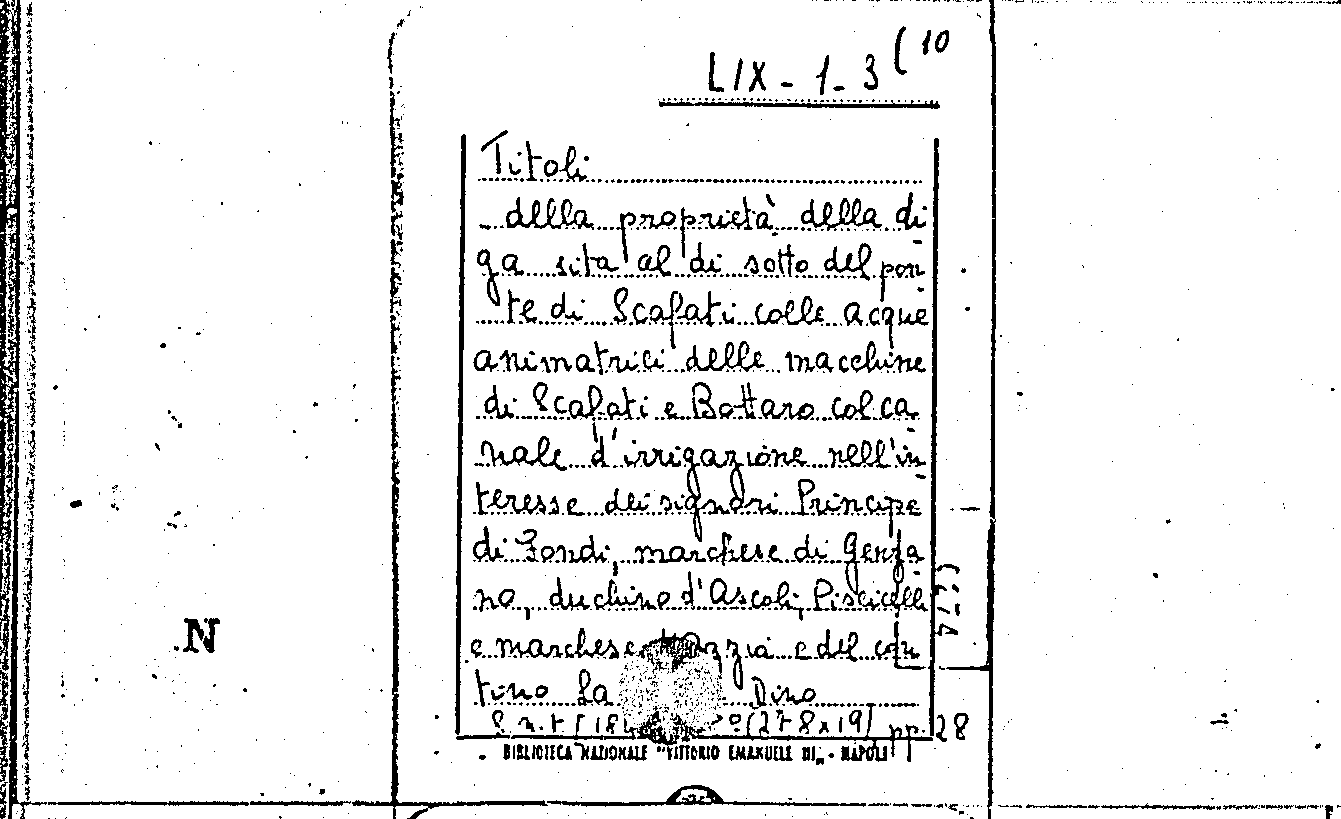 LIX - 1 - 3 (10
Titoli
della proprietà della di
ga sita al di sotto del pon
te di Scafati colle acque
animatrici delle macchine
di Scafati e Bottaro col ca
nale d'irrigazione nell'in
teresse dei signori Principe
di Fondi, marchese di Genza
no, duchino d'Ascoli, Piscicelli
e marchese e del con
tino La Dino
S. n. t. [18 (278x19) pp. 28
BIBLIOTECA NAZIONALE "VITTORIO EMANUELE III" - NAPOLI
N